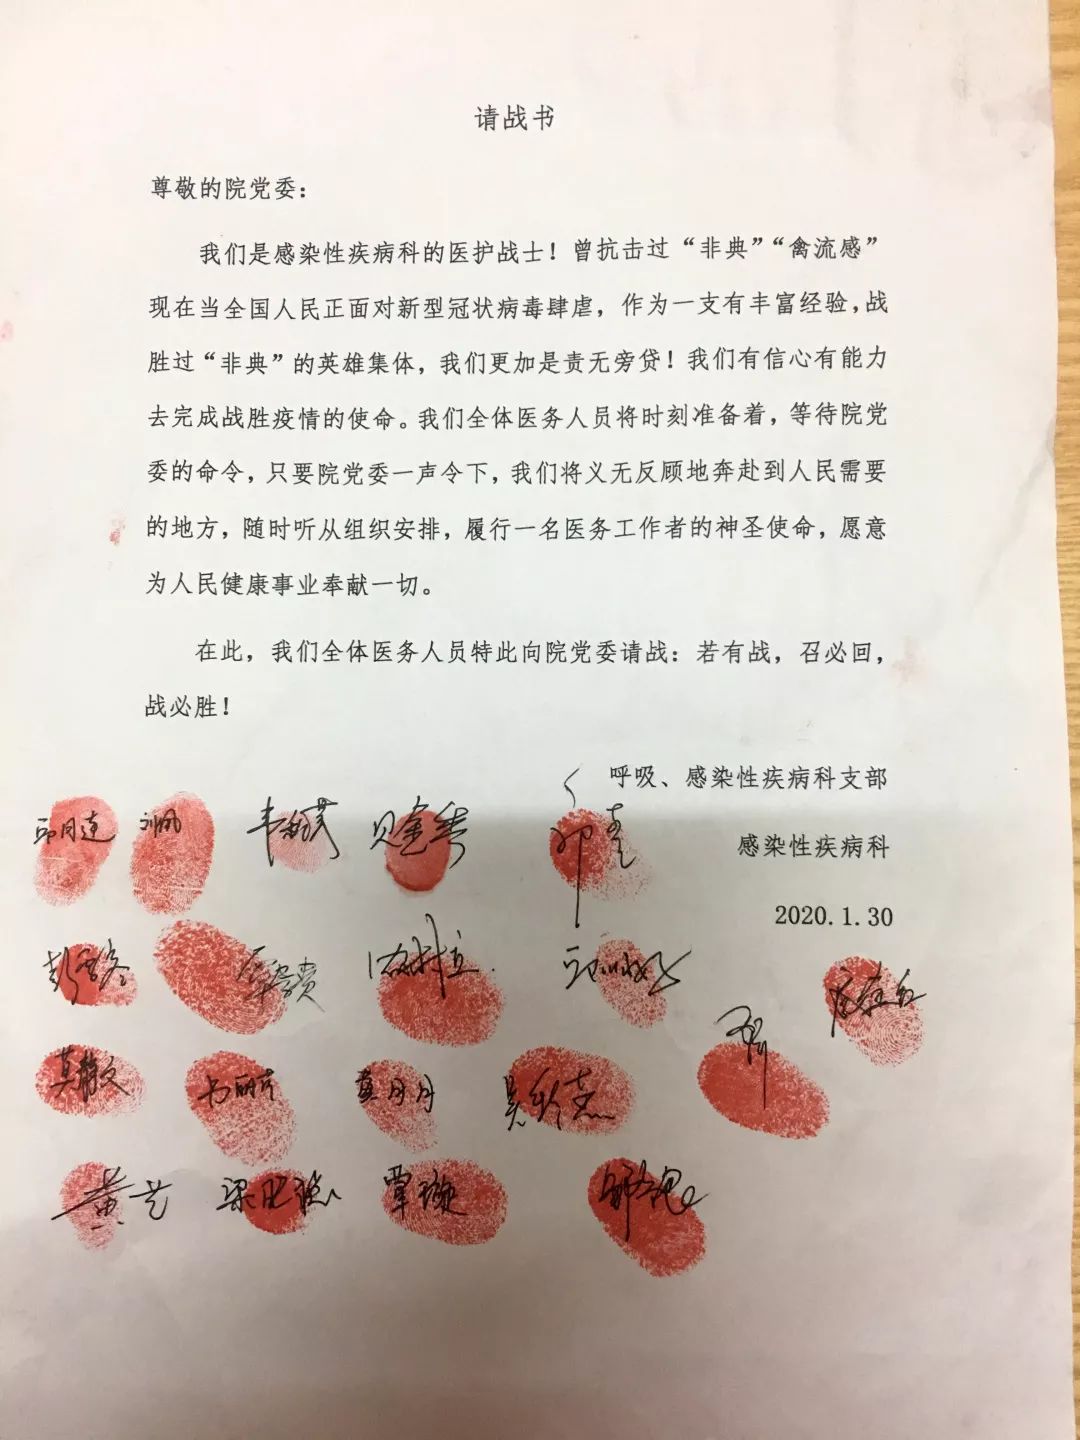 请战书
尊敬的院党委：
我们是感染性疾病科的医护战士！曾抗击过“非典”“禽流感”
现在当全国人民正面对新型冠状病毒肆虐，作为一支有丰富经验，战
胜过“非典”的英雄集体，我们更加是责无旁贷！我们有信心有能力
去完成战胜疫情的使命。我们全体医务人员将时刻准备着，等待院党
委的命令，只要院党委一声令下，我们将义无反顾地奔赴到人民需要
的地方，随时听从组织安排，履行一名医务工作者的神圣使命，愿意
为人民健康事业奉献一切。
在此，我们全体医务人员特此向院党委请战：若有战，召必回，
战必胜！
呼吸、感染性疾病科支部
感染性疾病科
2020.1.30
邱月连
莫静文 黄月月
覃璇